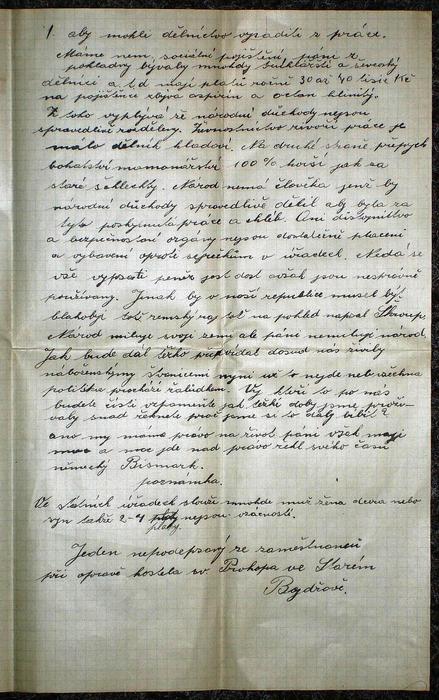 1. aby mohli dělnictvo vyřaditi z práce.
Máme nem. sociální pojištění, páni z
pokladny bývaly mnohdy truhlářští a ševcovský
dělníci a t.d mají platů ročně 30 až 40 tisíc Kč
na pojištěnce zbývá aspirin a octan hlinitý.
Z toho vyplývá že národní důchody nejsou
spravedlivě rozděleny. Živnostnictvo živoří práce je
málo dělník hladoví. Na druhé straně přepych
bohatství mamonářství 100% horší jak za
staré šlechty. Národ nemá člověka jenž by
národní důchody spravedlivě dělil aby byla za
tyto poskytnutá práce a chléb. Ani důstojnictvo
a bezpečnostní orgány nejsou dostatečně placeni
a vybaveni oproti v úřadech. Nedá se
vše vypsati peněz jest dost avšak jsou nesprávně
používany. Jinak by v naší republice musel být
blahobyt totž zemský ráj to na pohled napsal Škroup.
Národ miluje svoji zemi ale páni nemilují národ.
Jak bude dál těžko předvídat dosud nás živily
náboženstvím švancími nyní už to nejde neb všechna
politika prochází žalúdkem. Vy kteří to po nás
budete čísti vzpomeňte jak těžké doby jsme prožív-
aly snad řeknete proč jsme si to daly líbit?
ano my máme právo na život páni však mají
moc a moc jde nad právo řekl svého času
německý Bismark.
poznámka.
Ve státních úřadech slouží mnohde muž žena dcera nebo
syn takže 2-4 platy nejsou vzácností.
platy
Jeden nepodepsaný ze zaměstnanců
při opravě kostela sv. Prokopa ve Starém
Bydžově.